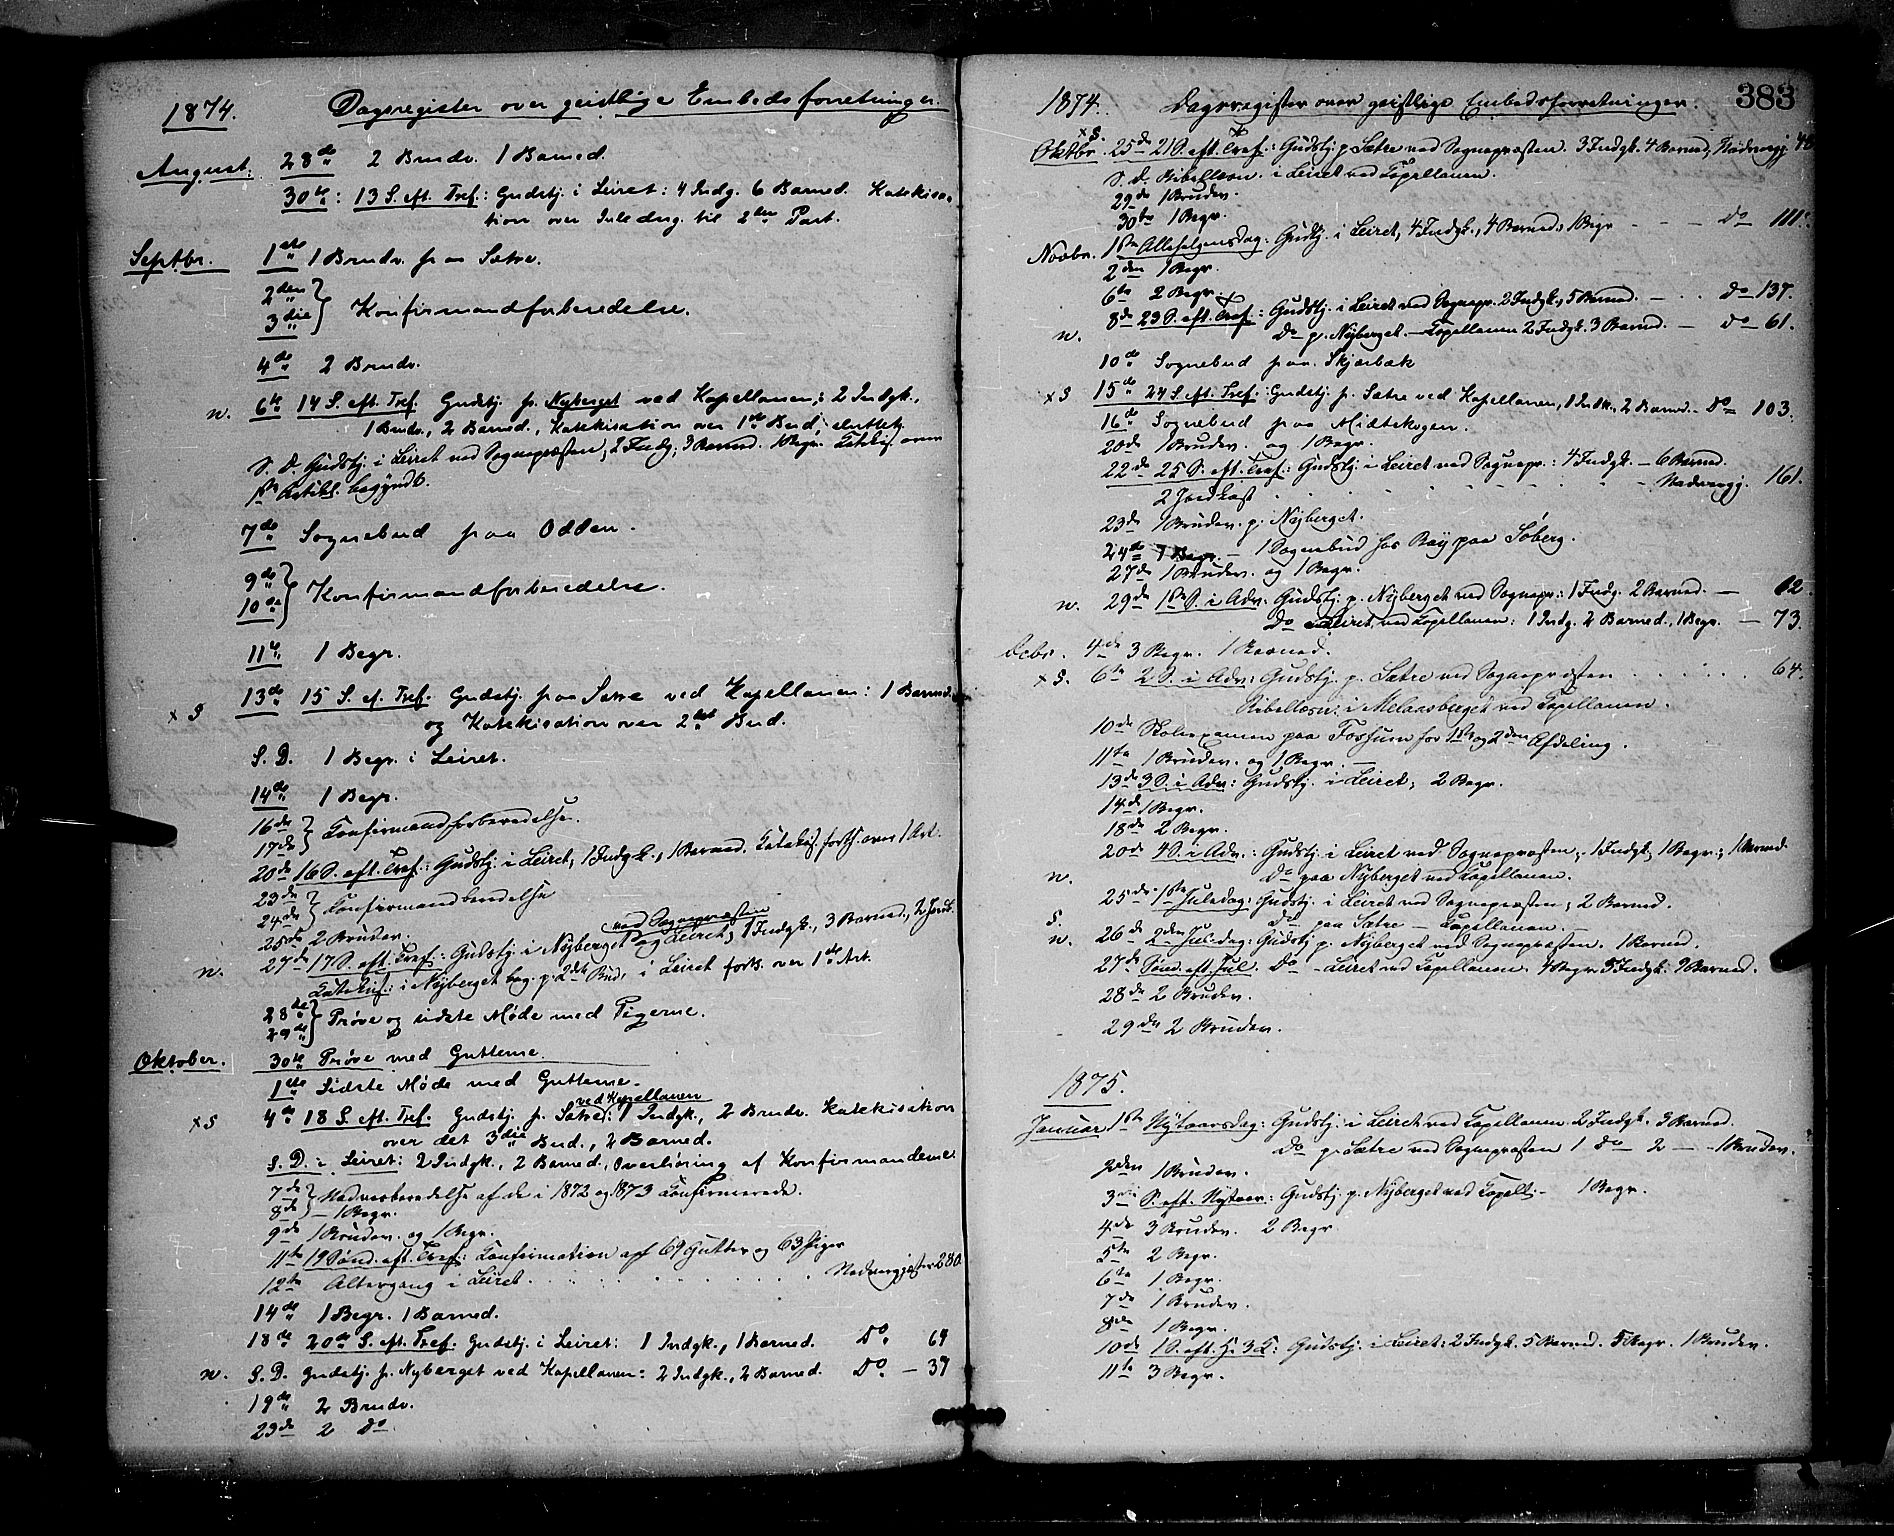 1874. Dagsregister over geistlige Embedsforretninger.
August: 28de 2 Brudv. 1 Barned.
30te: 13 S. eft. Tref: Gudstj. i Leiret: 4 Indg. 6 Barned. Katekisa-
tion over Inledng. til 2den Part.
Septbr. 1ste 1 Brudv. paa Sætre.
2den
3die } Konfirmandforberedelse.
4de 2 Brudv.
n. 6te 14 S. eft. Tref. Gudstj. p. Nyberget ved Kapellanen; 2 Indgk.,
1 Brudv., 2 Barned., Katekisation over 1ste Bud,
S. D. Gudstj. i Leiret ved Sognepræsten, 2 Indg, 3 Barned. 1 Begr. Katekis. over
1ste Artikl. begyndt.
7de Sognebud paa Odden.
9de
10de } Konfirmandforberedelse.
11te 1 Begr.
x S 13de 15 S. ef. Tref. Gudstj. paa Sætre ved Kapellanen: 1 Barned.
og Katekisation over 2det Bud.
S. D. 1 Begr. i Leiret.
14de 1 Begr.
16de
17de } Konfirmandforberedelse.
20de 16 S. eft. Tref: Gudstj. i Leiret, 1 Indgk., 1 Barned. Katekis. forts. over 1 Art.
23de
24de } Konfirmandberedelse
25de 2 Brudev.
ved Sognepræsten
n. 27de 17 S. eft. Tref: Gudstj. i Nyberget og Leiret; 1 Indgk., 3 Barned., 2 Jordk.
Katekis: i Nyberget beg. p. 2det Bud, i Leiret forts. over 1ste Art.
28de
29de } Prøve og sidste Møde med Pigerne.
Oktober. 30te Prøve med Gutterne.
1ste Sidste Møde med Gutterne.
ved Kapellanen
x S 4de 18 S. eft. Tref. Gudstj. p. Sætre: 1 Indgk., 2 Brudv. Katekisation
over det 3die Bud., 2 Barned.
S. D. i Leiret: 2 Indgk., 2 Barned., Overhøring af Konfirmanderne.
7de } Nadverberedelse af de i 1872 og 1873 Konfirmerede.
8de } – 1 Begr.
9de 1 Brudev. og 1 Begr.
11te 19 Sønd. eft. Tref: Konfirmation af 69 Gutter og 63 Piger
12te Altergang i Leiret . . . . . . . Nadvergjæster 280
14de 1 Begr. 1 Barned.
18de 20de S. eft. Tref. Gudstj. i Leiret: 1 Indgk., 1 Barned. Do 69
n. S. D. Gudstj. p. Nyberget ved Kapellanen: 2 Indgk., 2 Barned. Do – 39
19de 2 Brudv.
23de 2 Do
1874. Dagsregister over geistlige Embedsforretninger. 383
x S.
Oktbr. 25de 21 S. eft. Tref: Gudstj. p. Sætre ved Sognepræsten. 3 Indgk. 4 Barned, Nadvergj. 48
S. D. Bibellæsn. i Leiret ved Kapellanen.
29de 1 Brudev.
30te 1 Begr.
Novbr. 1ste Allehelgensdag. Gudstj. i Leiret, 4 Indgk., 4 Barned, 1 Begr – – – Do 111.
2den 1 Begr.
6te 2 Begr.
8de 23 S. eft. Tref: Gudstj. i Leiret ved Sognepr. 2 Indgk., 5 Barned. – . . Do 137.
n. Do p. Nyberget – Kapellanen 2 Indgk. 3 Barned. – Do 61.
10de Sognebud paa Skjærbæk
x S 15de 24 S. eft. Tref: Gudstj. p. Sætre ved Kapellanen, 1 Indk., 2 Barned. – Do 103.
16de Sognebud paa Midtskogen.
20de 1 Brudev. og 1 Begr.
22de 25 S. eft. Tref: Gudstj. i Leiret ved Sognepr.: 4 Indgk. – 6 Barned.
2 Jordkast . . . . . . . . Nadvergj. 161.
23de 1 Brudev. p. Nyberget.
24de 1 Begr. – 1 Sognebud hos Roy paa Søberg.
27de 1 Brudev. og 1 Begr.
n. 29de 1ste S. i Adv. Gudstj. p. Nyberget ved Sognepr.: 1 Indg. 2 Barned. – 62.
Do Leiret ved Kapellanen: 1 Indg. 2 Barned., 1 Begr. – 73.
Decbr. 4de 3 Begr. 1 Barned.
x S. 6te 2 S. i Adv: Gudstj. p. Sætre ved Sognepræsten . . . . . . 64.
Bibellæsn: i Melaasberget ved Kapellanen.
10de Skoleexamen paa Fossum for 1ste og 2den Afdeling.
11te 1 Brudev. og 1 Begr.
13de 3 S. i Adv: Gudstj. i Leiret, 2 Begr.
14de 1 Begr.
18de 2 Begr.
20de 4 S. i Adv.: Gudstj. i Leiret ved Sognepræsten, 1 Indgk, 1 Begr., 1 Barned
n. Do paa Nyberget ved Kapellanen.
25de 1ste Juledag: Gudstj. i Leiret ved Sognepræsten; 2 Barned.
S. Do paa Sætre – Kapellanen. –
n. 26de 2den Juledag: Gudstj. p. Nyberget ved Sognepræsten. 1 Barned.
27de Sønd. eft. Jul. Do – Leiret ved Kapellanen. 4 Begr. 3 Indgk. 9 Barned.
28de 2 Brudev.
29de 2 Brudev.
1875.
Januar 1ste Nytaarsdag: Gudstj. i Leiret ved Kapellanen 2 Indgk. 3 Barned.
Do p. Sætre ved Sognepræsten 1 Do 2 – – 1 Brudev.
2den 1 Brudev.
3die S. eft. Nytaar: Gudstj. p. Nyberget ved Kapell. – 1 Begr.
4de 3 Brudev. 2 Begr
5te 2 Begr.
6te 1 Begr.
7de 1 Brudev.
8de 1 Begr.
10de 1 S. eft. H. 3 K: Gudstj. i Leiret: 2 Indgk. 5 Barned. 5 Begr. 1 Brudev.
11te 3 Begr.